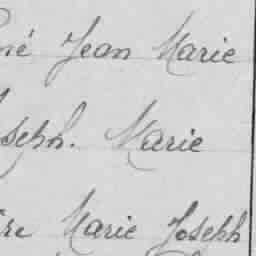 né Jean Marie
oseph. Marie
re Marie Joseph